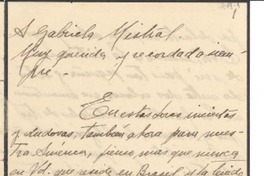 1
A Gabriela Mistral
Muy querida y recordada siem-
pre.
En estas horas inciertas
y dudosas, también ahora para nues-
tra América, pienso mas que nunca
en Ud. que vive en Brasil y la